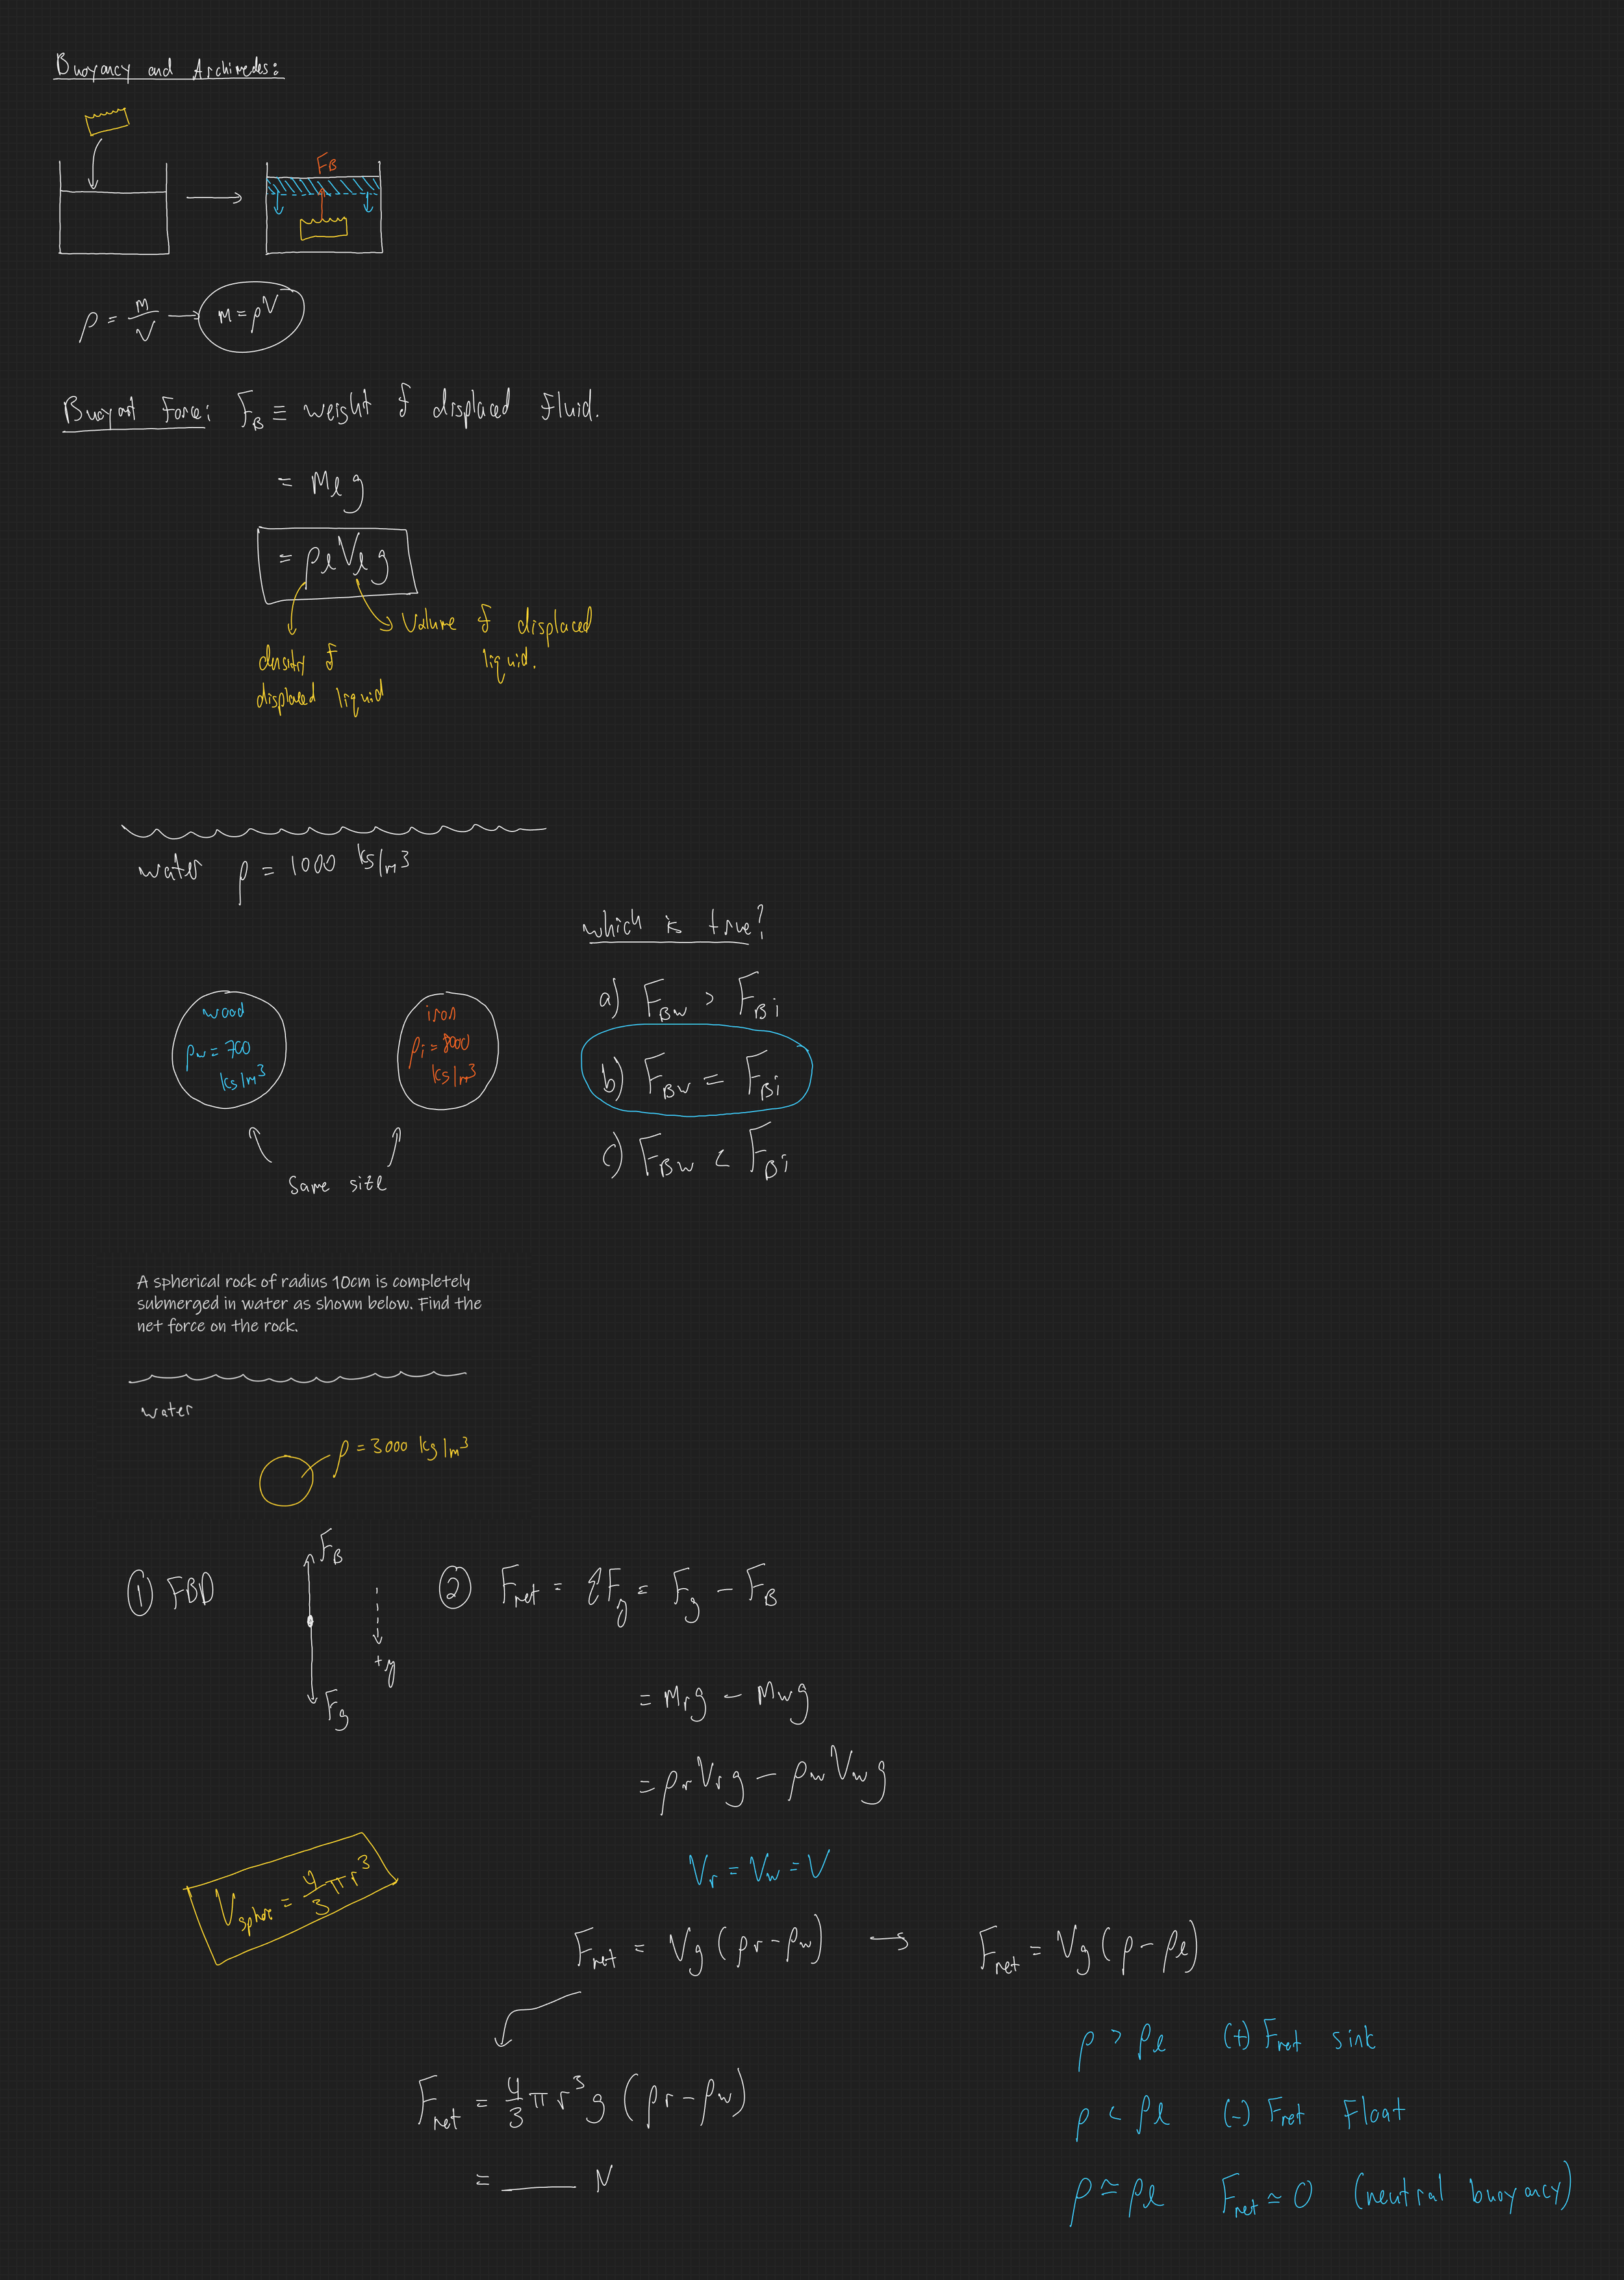 Buoyancy and Archimedes:
F_B
ρ = m/V → m = ρV
Buoyant Force: F_B ≡ weight of displaced fluid.
= m_ℓ g
= ρ_ℓ V_ℓ g
Volume of displaced liquid.
density of displaced liquid
water ρ = 1000 kg/m³
which is true?
wood
ρ_w = 700
kg/m³
iron
ρ_i = 8000
kg/m³
a) F_Bw > F_Bi
b) F_Bw = F_Bi
c) F_Bw < F_Bi
Same size
A spherical rock of radius 10cm is completely
submerged in water as shown below. Find the
net force on the rock.
water
ρ = 3000 kg/m³
① FBD
F_B
+y
F_g
② F_net = ΣF_y = F_g - F_B
= m_r g - m_w g
= ρ_r V_r g - ρ_w V_w g
V_r = V_w = V
V_sphere = 4/3 πr³
F_net = Vg (ρ_r - ρ_w) → F_net = Vg (ρ - ρ_ℓ)
ρ > ρ_ℓ (+) F_net sink
F_net = 4/3 π r³ g (ρ_r - ρ_w)
ρ < ρ_ℓ (-) F_net Float
= ____ N
ρ ≃ ρ_ℓ F_net ≃ 0 (neutral buoyancy)